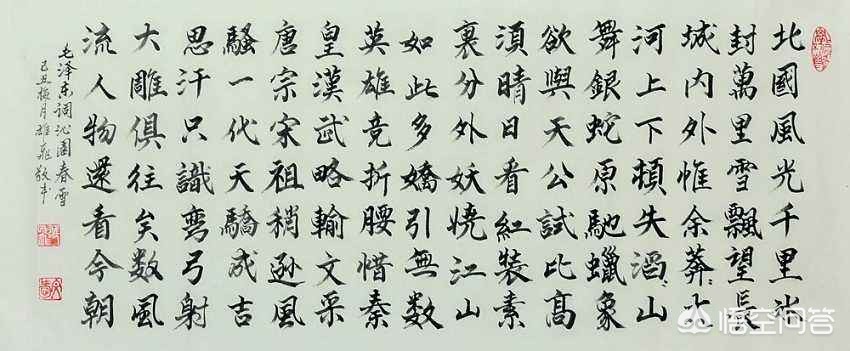 北國風光千里冰
封萬里雪飄望長
城内外惟余莽〻大
河上下頓失滔〻山
舞銀蛇原馳蠟象
欲與天公試比高
須晴日看紅裝素
裏分外妖嬈江山
如此多嬌引無數
英雄竞折腰惜秦
皇漢武略輸文采
唐宗宋祖稍逊風
騷一代天驕成吉
思汗只識弯弓射
大雕俱往矣数風
流人物還看今朝
毛泽东词沁園春雪
己丑梅月雄飛敬书
悟空问答